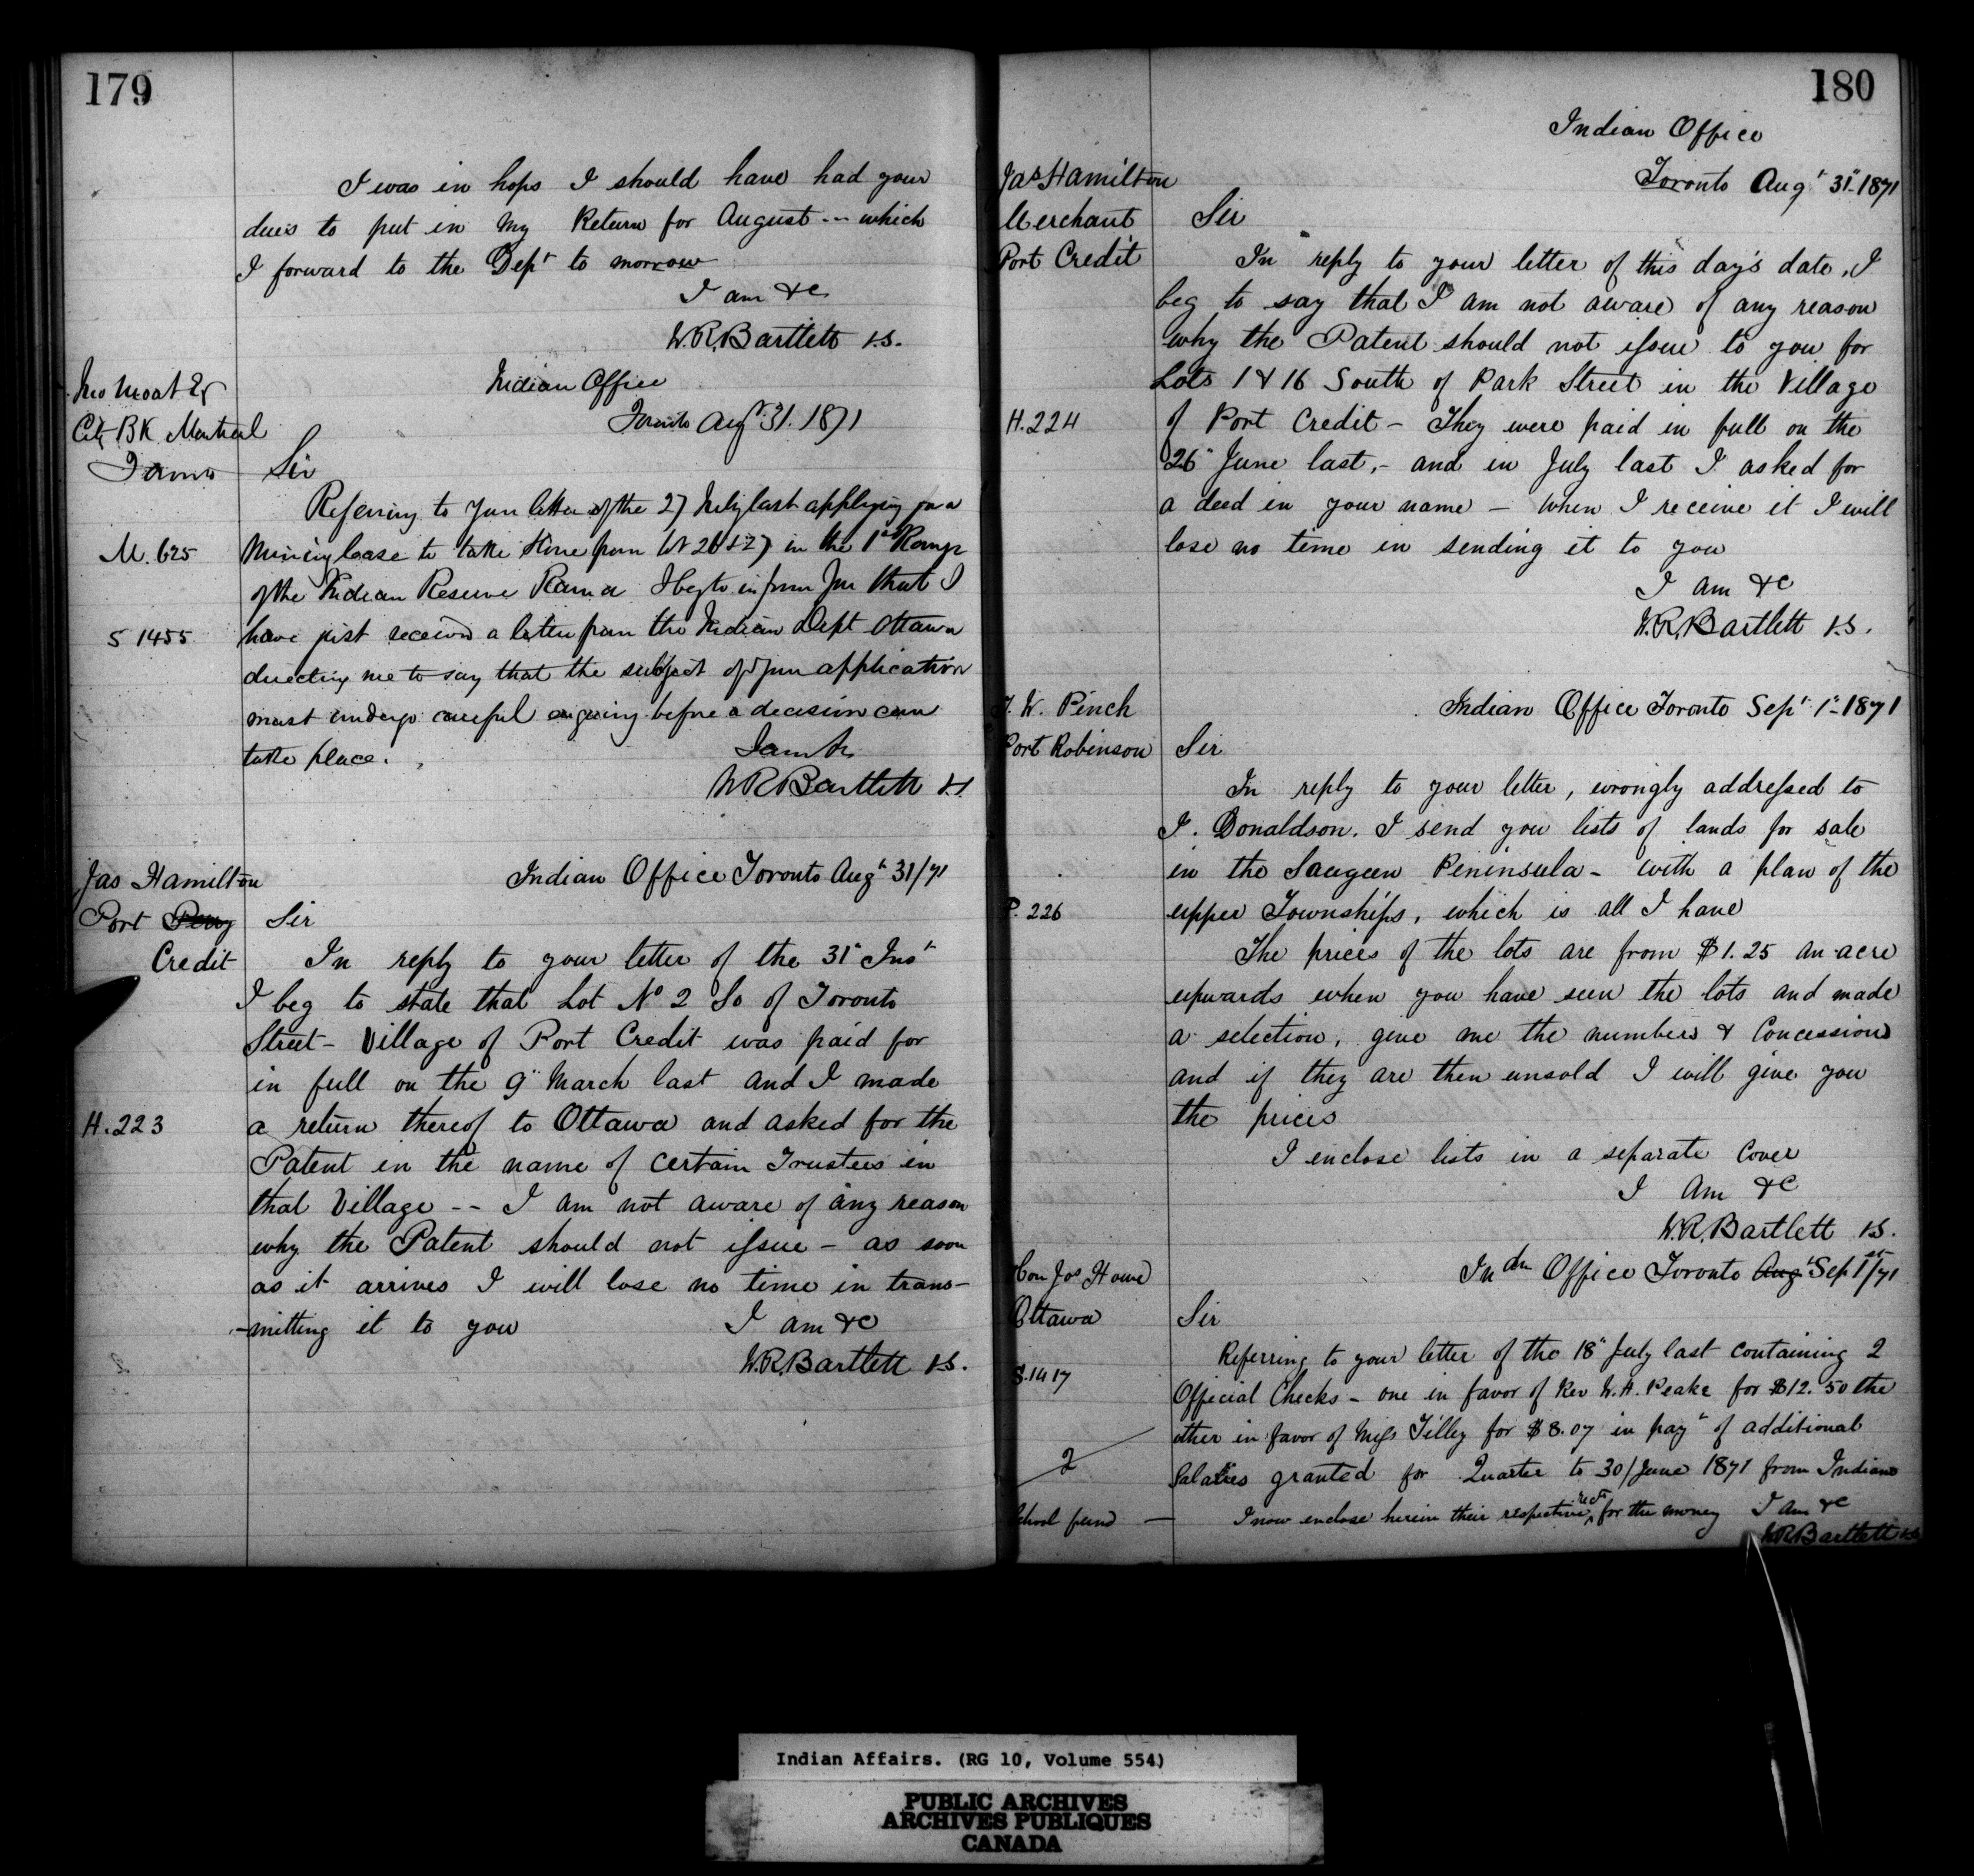 179
I was in hops I should have had your
dues to put in my Return for August -- which
I forward to the Dept to morrow
I am &c
W.R. Bartlett V.S.
City BK Montreal
Indian Office
Toronto Augt 31. 1871
Sir
Referring to your letter of the 27 July last applying for a
M. 625
Mining lease to take stone from lot 26 & 27 in the 1st Range
of the Indian Reserve Rama I beg to inform you that I
S 1455
have just received a letter from the Indian Dept Ottawa
directing me to say that the subject of your application
must undergo careful enquiry before a decision can
take place.
I am &c
W R Bartlett V.S.
Jas Hamilton
Port Perry
Credit
Indian Office Toronto Augt 31/71
Sir
In reply to your letter of the 31" Inst
I beg to state that Lot No 2 So of Toronto
Street - Village of Port Credit was paid for
in full on the 9" March last and I made
H. 223
a return thereof to Ottawa and asked for the
Patent in the name of certain Trustees in
that Village -- I am not aware of any reason
why the Patent should not issue - as soon
as it arrives I will lose no time in trans-
-mitting it to you
I am &c
W.R. Bartlett V.S.
180
Indian Office
Toronto Augt 31" 1871
Jas Hamilton
Merchant
Port Credit
Sir
In reply to your letter of this day's date, I
beg to say that I am not aware of any reason
why the Patent should not issue to you for
Lots 1 & 16 South of Park Street in the Village
H. 224
of Port Credit - They were paid in full on the
26" June last, - and in July last I asked for
a deed in your name - when I receive it I will
lose no time in sending it to you
I am &c
W.R. Bartlett V.S.
W. Pinch
Port Robinson
Indian Office Toronto Sept 1" 1871
Sir
In reply to your letter, wrongly addressed to
Donaldson. I send you lists of lands for sale
in the Saugeen Peninsula - with a plan of the
P. 226
upper Townships, which is all I have
The prices of the lots are from $1.25 an acre
upwards when you have seen the lots and made
a selection, give me the numbers & Concessions
and if they are then unsold I will give you
the prices
I enclose lists in a separate Cover
I am &c
W.R. Bartlett V.S.
Hon Jos Howe
Ottawa
Indn Office Toronto Augt Sep 1st/71
Sir
Referring to your letter of the 18" July last containing 2
S. 1417
Official Checks - one in favor of Rev W.H. Peake for $12.50 the
other in favor of Miss Tilley for $8.07 in payt of additional
2
Salaries granted for Quarter to 30/June 1871 from Indian
School fund - I now enclose herein their respective rects for the money I am &c
W.R. Bartlett V.S.
Indian Affairs. (RG 10, Volume 554)
PUBLIC ARCHIVES
ARCHIVES PUBLIQUES
CANADA